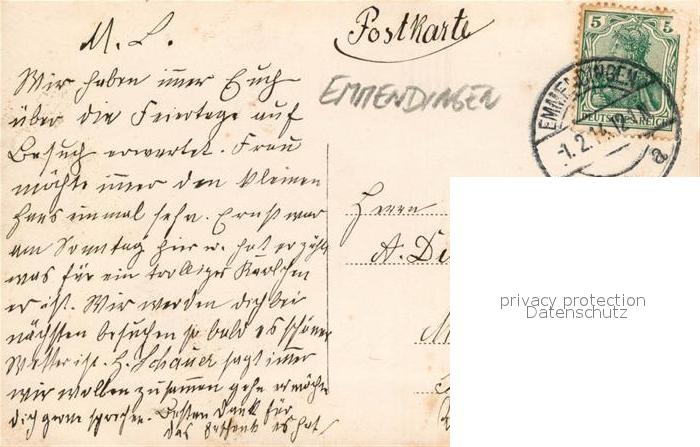 Postkarte
EMMENDINGEN
5 5
DEUTSCHES REICH
EMMENDINGEN
-1.2.14.12-
a
M. L.
Wir haben immer Euch
über die Feiertage auf
Besuch erwartet. Frau
möchte immer den kleinen
Hans einmal sehn. Ernst war
am Sonntag hier u. hat erzählt
was für ein drolliges Kerlchen
er ist. Wir werden dich bei
nächsten besuchen so bald es schöner
Wetter ist. H. Schauer sagt immer
wir wollen zusammen gehn er möchte
dich gerne sprechen. Besten Dank für
das Geschenk es hat
Herrn
A. De
M
privacy protection
Datenschutz